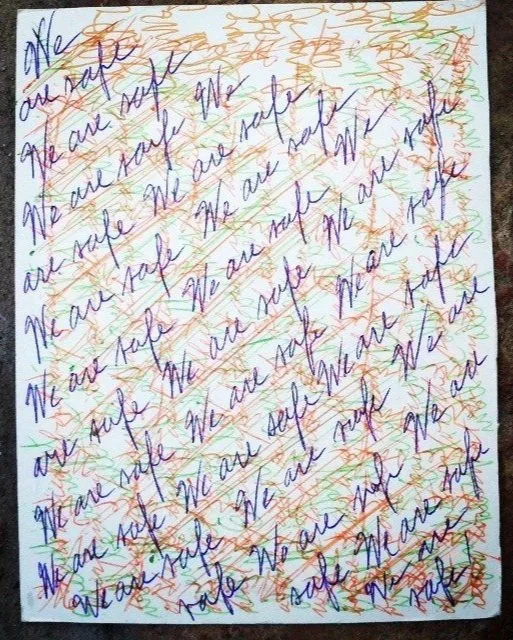 We
are safe
We are safe
We are safe We
are safe We are safe
We are safe We are safe
We are safe We are safe We
are safe We are safe We are safe
We are safe We are safe We are safe
We are safe We are safe We are safe
We are safe We are safe We are
safe We are safe We are
safe We are safe
We are
safe!